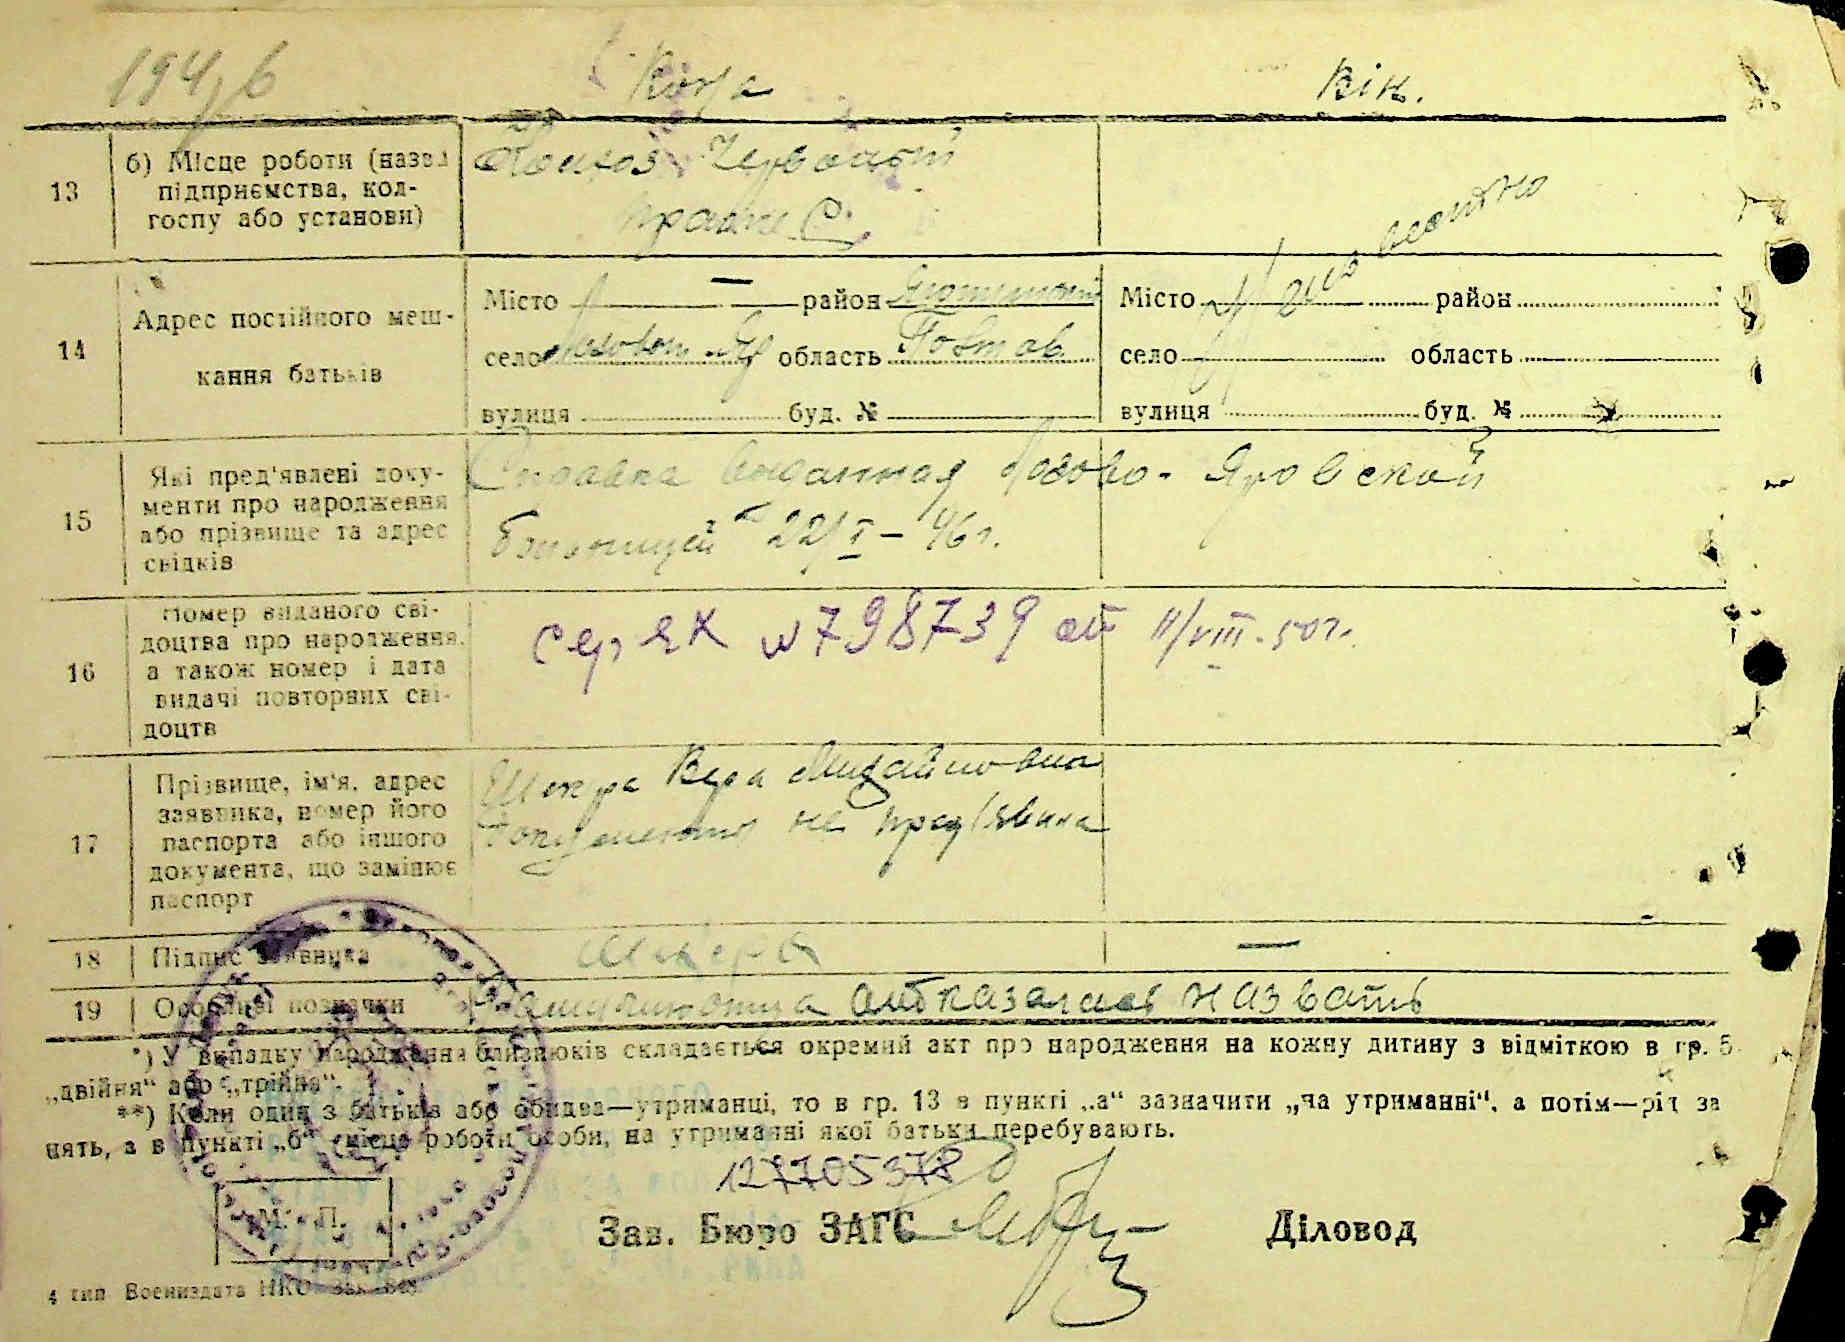 1946
Вона
Він.
13
б) Місце роботи (назва
підприємства, кол-
госпу або установи)
Колхоз Червоный
14
Адрес постійного меш-
кання батьків
Місто — район
село Лозовой Яр область Полтав.
вулиця буд. №
Місто район
село область
вулиця буд. №
неизвестно
15
Які пред'явлені доку-
менти про народження
або прізвище та адрес
свідків
Справка выданная Лозово-Яровской
больницей 22/I-46 г.
16
Номер виданого сві-
доцтва про народження,
а також номер і дата
видачі повторних сві-
доцтв
Сер ЯК №798739 от 11/VIII-50 г.
17
Прізвище, ім'я, адрес
заявника, номер його
паспорта або іншого
документа, що замінює
паспорт
Шкура Вера Михайловна
документы не предъявила
18
Підпис заявника
Шкура
—
19
Особливі позначки
отказалась назвать
*) У випадку народження близнюків складається окремий акт про народження на кожну дитину з відміткою в гр. 5
„двійня“ або „трійня“.
**) Коли один з батьків або обидва—утриманці, то в гр. 13 в пункті „а“ зазначити „на утриманні“, а потім—рід за
нять, а в пункті „б“ місце роботи особи, на утриманні якої батьки перебувають.
127705378
М. П.
Зав. Бюро ЗАГС
Діловод
4 тип Воениздата НКО